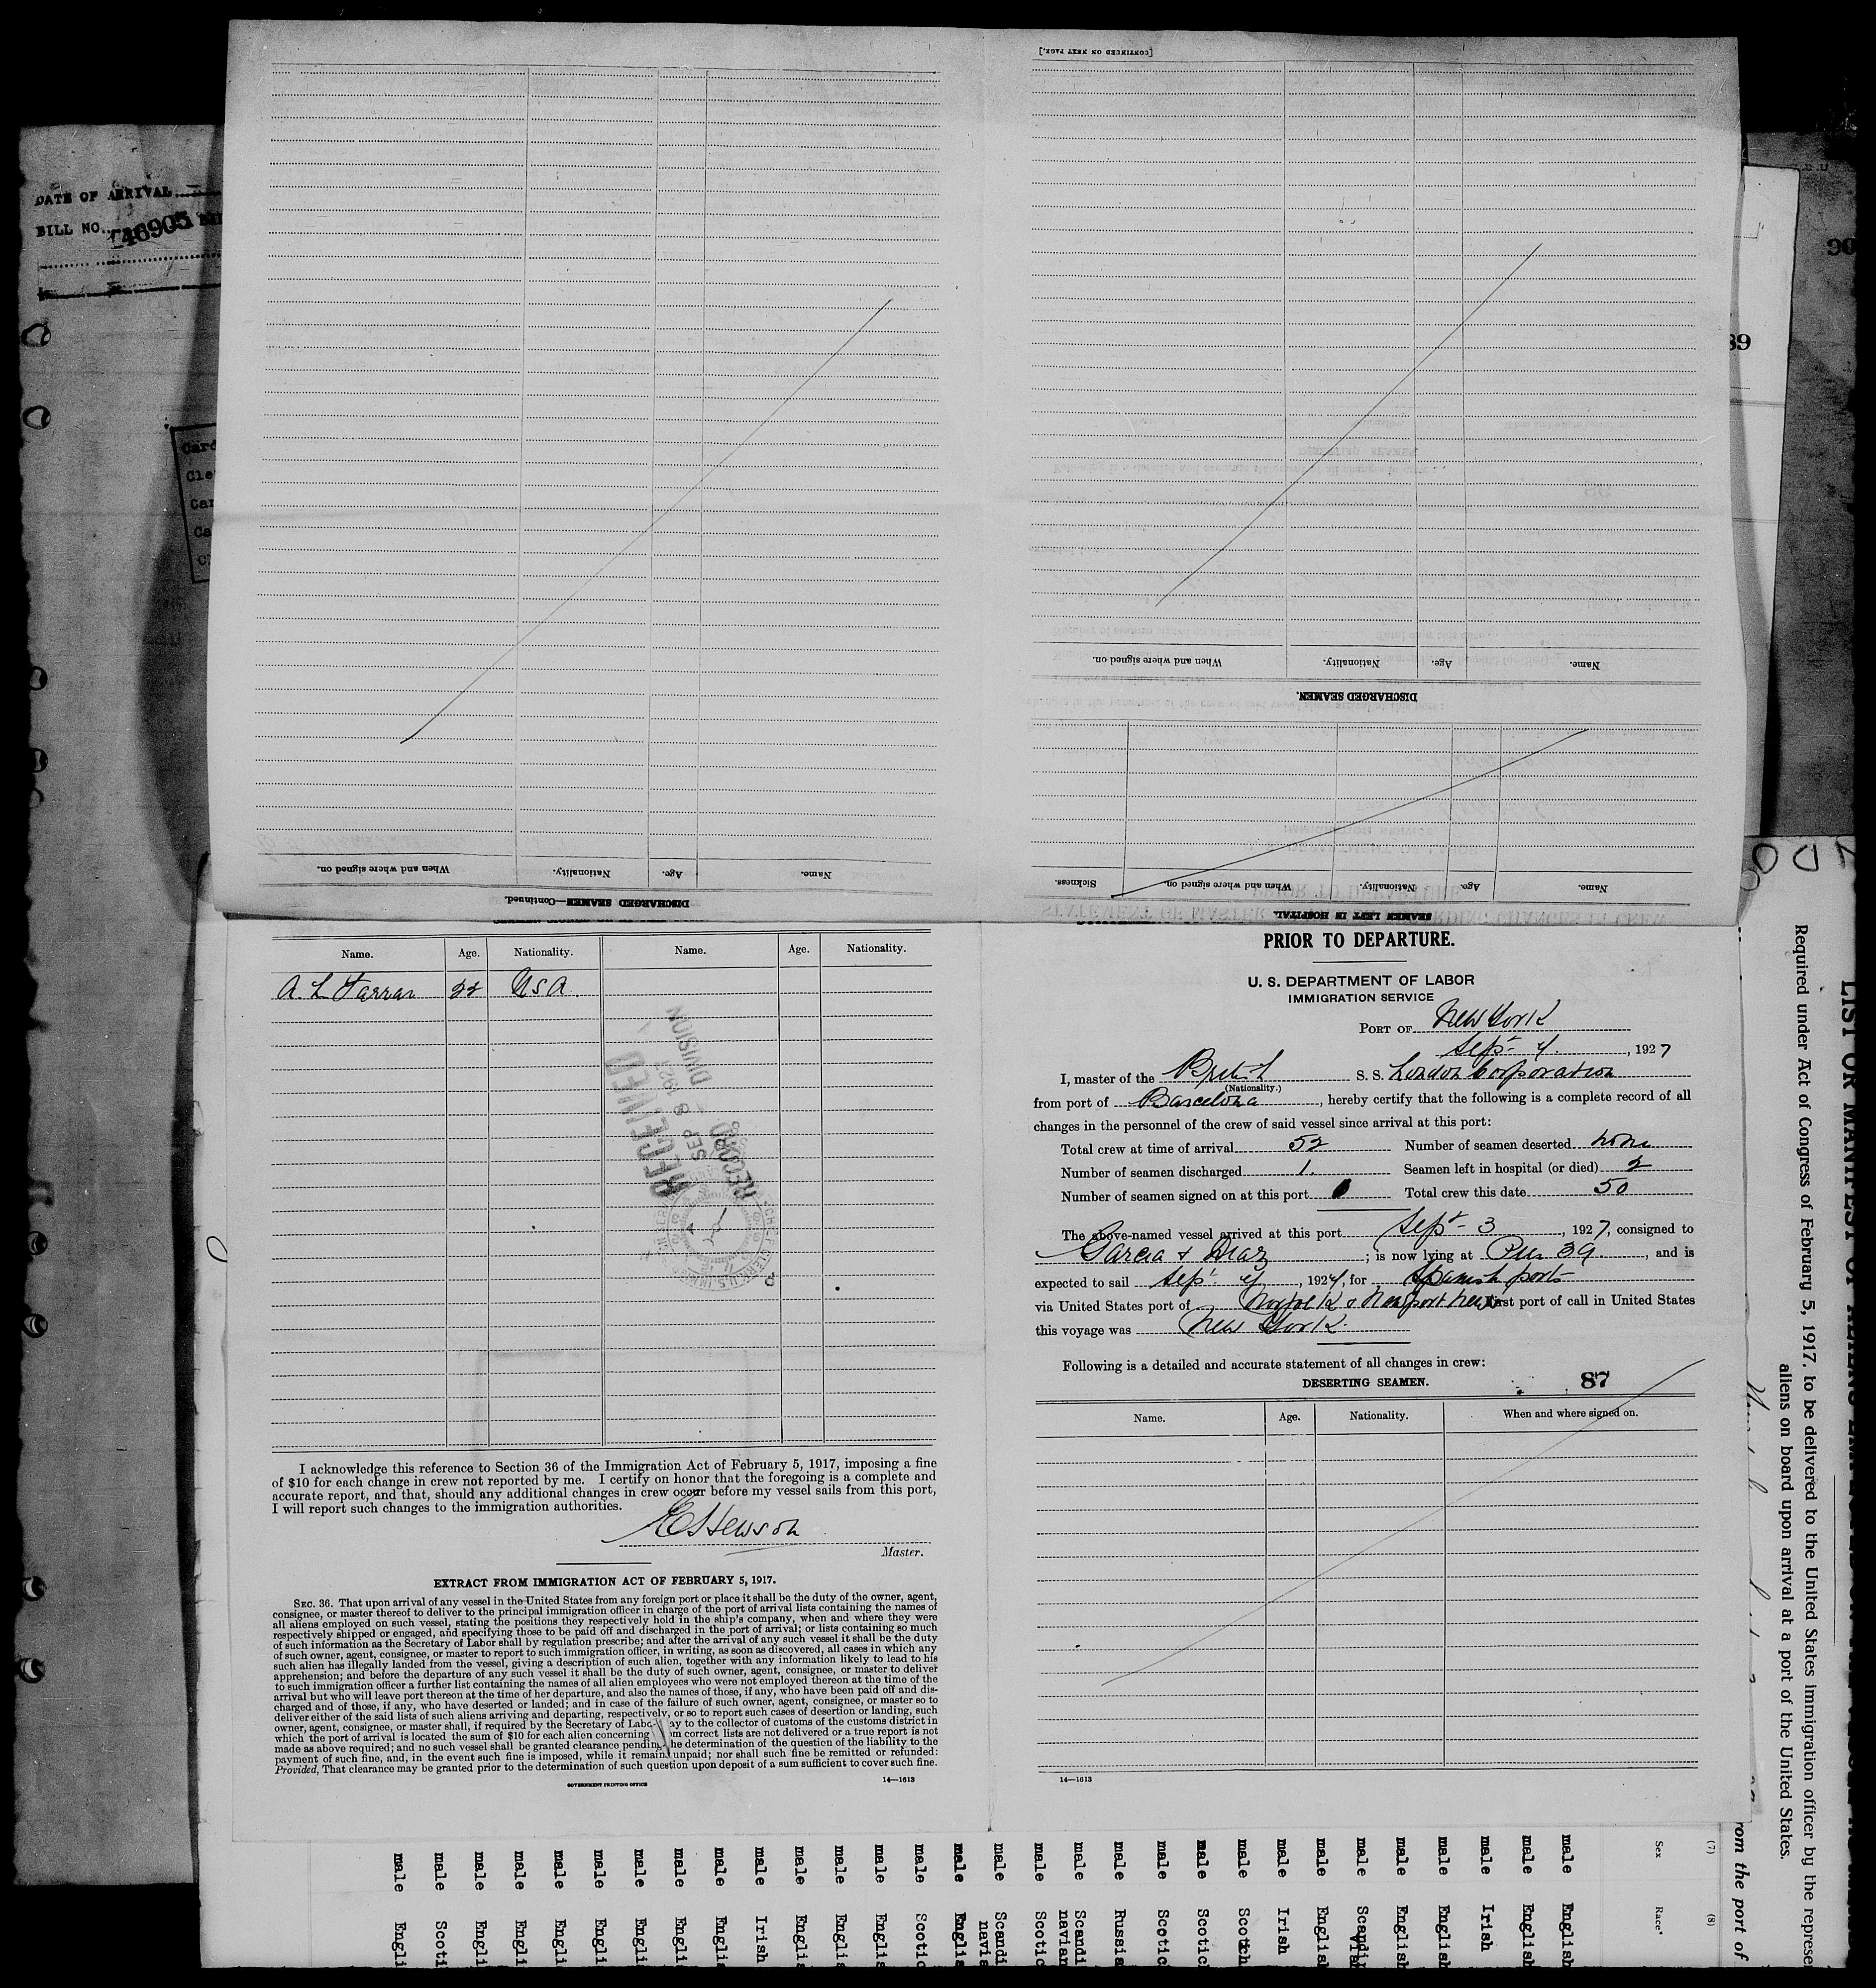 DATE OF ARRIVAL
BILL NO. 46905
[CONTINUED ON NEXT PAGE.]
Name. Age. Nationality. When and where signed on.
DISCHARGED SEAMEN.
Name. Age. Nationality. When and where signed on. Sickness.
SEAMEN LEFT IN HOSPITAL.
Name. Age. Nationality. When and where signed on.
DISCHARGED SEAMEN—Continued.
Name. Age. Nationality. Name. Age. Nationality.
A. L Farrar 22 USA.
RECEIVED
SEP 8 192
RECORD DIVISION
I acknowledge this reference to Section 36 of the Immigration Act of February 5, 1917, imposing a fine
of $10 for each change in crew not reported by me. I certify on honor that the foregoing is a complete and
accurate report, and that, should any additional changes in crew occur before my vessel sails from this port,
I will report such changes to the immigration authorities.
Master.
EXTRACT FROM IMMIGRATION ACT OF FEBRUARY 5, 1917.
SEC. 36. That upon arrival of any vessel in the United States from any foreign port or place it shall be the duty of the owner, agent,
consignee, or master thereof to deliver to the principal immigration officer in charge of the port of arrival lists containing the names of
all aliens employed on such vessel, stating the positions they respectively hold in the ship's company, when and where they were
respectively shipped or engaged, and specifying those to be paid off and discharged in the port of arrival; or lists containing so much
of such information as the Secretary of Labor shall by regulation prescribe; and after the arrival of any such vessel it shall be the duty
of such owner, agent, consignee, or master to report to such immigration officer, in writing, as soon as discovered, all cases in which any
such alien has illegally landed from the vessel, giving a description of such alien, together with any information likely to lead to his
apprehension; and before the departure of any such vessel it shall be the duty of such owner, agent, consignee, or master to deliver
to such immigration officer a further list containing the names of all alien employees who were not employed thereon at the time of the
arrival but who will leave port thereon at the time of her departure, and also the names of those, if any, who have been paid off and dis-
charged and of those, if any, who have deserted or landed; and in case of the failure of such owner, agent, consignee, or master so to
deliver either of the said lists of such aliens arriving and departing, respectively, or so to report such cases of desertion or landing, such
owner, agent, consignee, or master shall, if required by the Secretary of Labo ay to the collector of customs of the customs district in
which the port of arrival is located the sum of $10 for each alien concerning om correct lists are not delivered or a true report is not
made as above required; and no such vessel shall be granted clearance pending he determination of the question of the liability to the
payment of such fine, and, in the event such fine is imposed, while it remain unpaid; nor shall such fine be remitted or refunded:
Provided, That clearance may be granted prior to the determination of such question upon deposit of a sum sufficient to cover such fine.
GOVERNMENT PRINTING OFFICE 14—1613
PRIOR TO DEPARTURE.
U. S. DEPARTMENT OF LABOR
IMMIGRATION SERVICE
PORT OF New York
Sept 4., 1927
I, master of the British S. S. London Corporation
(Nationality.)
from port of Barcelona, hereby certify that the following is a complete record of all
changes in the personnel of the crew of said vessel since arrival at this port:
Total crew at time of arrival 52 Number of seamen deserted none
Number of seamen discharged 1. Seamen left in hospital (or died) 2
Number of seamen signed on at this port Total crew this date 50
The above-named vessel arrived at this port Sept - 3, 1927, consigned to
Garcia & Diaz; is now lying at Pier 39., and is
expected to sail Sept 4, 1927, for Spanish ports
via United States port of Norfolk & Newport News last port of call in United States
this voyage was New York.
Following is a detailed and accurate statement of all changes in crew:
DESERTING SEAMEN. 87
Name. Age. Nationality. When and where signed on.
14—1613
Required under Act of Congress of February 5, 1917, to be delivered to the United States immigration officer by the represe
aliens on board upon arrival at a port of the United States.
rom the port of
(7) (8)
Sex Race*
male English
male English
male Irish
male English
male English
male Scandi
male English
male Irish
male Scotch
male Scotic
male Scotic
male Russia
male Scandi
navian
male Scotic
male Scandi
navia
male Englis
male Scotic
male Englis
male Engli
male Engli
male Irish
male Engli
male Engli
male Engli
male Engli
male Engli
male Engli
male Engli
male Scoti
male Engli